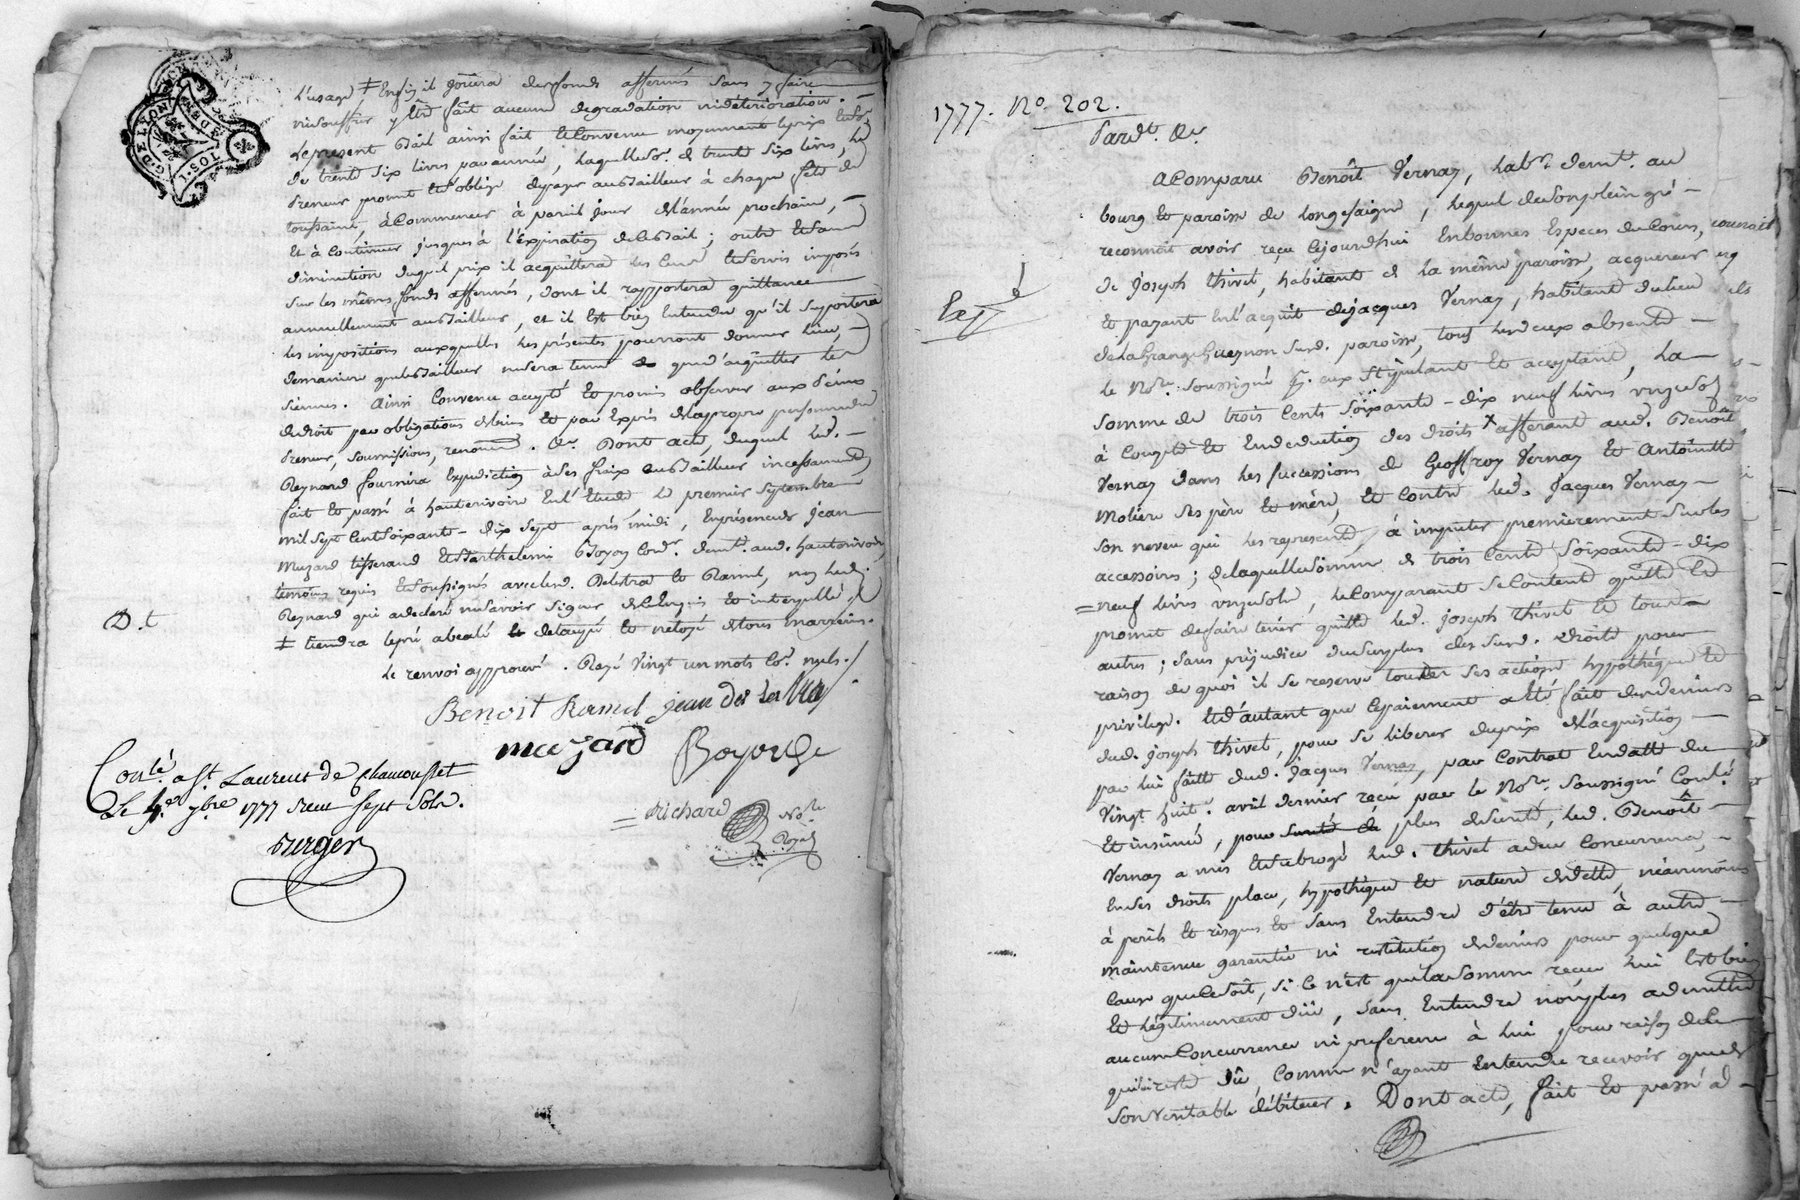 l'usage ‡ Enfin il jouira desfonds affermés sans y faire
nisouffrir y être fait aucune degradation nidétérioration. —
Leprésent Bail ainsi fait et Convenu moyennant leprix
de trente six livres parannée, laquelle de trente six livres, le
Preneur promet et s'oblige depayer auBailleur à chaque fête de
toussaint, à Commencer à pareil jour de l'année prochaine, —
Et à Continuer jusques à l'expiration de ce Bail; outre et sans
diminution duquel prix il acquittera les Cens et servis imposés
sur les mêmes fonds affermés, dont il rapportera quittance
annuellement auBailleur, et il est bien Entendu qu'il supportera
les impositions auxquelles les présentes pourront donner lieu,
demaniere que le Bailleur nesera tenu que d'acquitter les
siennes. Ainsi Convenu accepté et promis observer aux peines
de droit par obligations de biens et par Exprès de la propre personne du
Preneur, soumissions, renon.. &c. Dont acte, duquel led. —
Reynard fournira Expedition à ses fraix auBailleur incessamment
fait et passé à hauterivoire En l'Etude le premier septembre
mil sept Cent soixante-dix sept après midi, En présence de Jean
Mazard tisserand et Barthelemi Boyon Cord.r demt. aud. hauterivoire
témoins requis et soussignés avec lesd. Delestra et Ramel, non led.
Reynard qui a declaré ne savoir signer de ce Enquis et interpellé,
‡ tiendra le pré abealé et detaupé et netoyé de tous
le renvoi approuvé. Rayé vingt un mots Co.e nuls.
D. t
Benoit Ramel jean de les tra
mazard Boyon
Richard No.re Royal
Conlé. a St. Laurent de Chamousset
Le 4.e 7bre 1777 reçu sept sols.
Burger
G. DE LYON
1. SOL
1777. No. 202.
Pardt. &c.
A Comparu Benoît Vernay, labr. demt. au
bourg et paroisse de Longessaigne, lequel de son plein gré —
reconnoit avoir reçu Cejourdhui En bonnes Especes du Cours,
de Joseph Thivel, habitant de la même paroisse, acquereur
Et payant En l'acquit de Jacques Vernay, habitant du lieu
de la Grange Gueynon susd. paroisse, tous les deux absents —
le No.re soussigné pr. eux stipulant et acceptant, la —
somme de trois Cents soixante-dix neuf livres onze sols
à Compte et En deduction des droits afferant aud. Benoît
Vernay dans les successions de Geoffroy Vernay et Antoinette
Moliere ses père et mère, et Contre led. Jacques Vernay —
son neveu qui les represente, à imputer premierement sur les
accessoires; de laquelle somme de trois Cents soixante-dix
= neuf livres onze sols, le Comparant se Content quitte et
promet de faire tenir quitte led. Joseph Thivel et tous
autres; sans préjudice du surplus des susd. droits pour
raison de quoi il se reserve toutes ses actions hypothèque et
privilege. Et d'autant que Ce paiement a été fait des deniers
dud. Joseph Thivel, pour se liberer du prix de l'acquisition —
par lui faitte dud. Jacques Vernay, par Contrat En datte du
vingt huit avril dernier reçu par le No.re soussigné Conlé.
Et insinué, pour sureté de plus de sureté, led. Benoît —
Vernay a mis et subrogé led. Thivel a due Concurrence, —
En ses droits place, hypothèque et nature de dette, néanmoins
à perils et risques et sans Entendre d'être tenu à autre —
maintenue garantie ni restitution de deniers pour quelque
Cause que Ce soit, si Ce n'est que la somme reçue lui Est bien
Et légitimement düe, sans Entendre non plus admettre
aucune Concurrence ni preference à lui pour raison de Ce
qui lui reste dû, Comme n'ayant Entendu recevoir que de
son veritable débiteur. Dont acte, fait et passé a d —